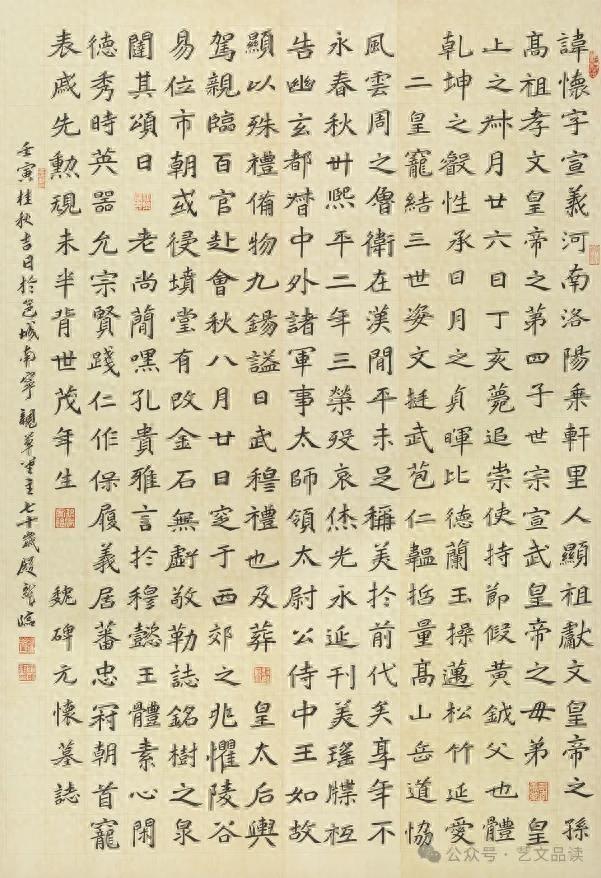 諱懷字宣義河南洛陽乘軒里人顯祖獻文皇帝之孫
高祖孝文皇帝之第四子世宗宣武皇帝之母弟 皇
上之叔月廿六日丁亥薨追崇使持節假黃鉞父也體
乾坤之叡性承日月之貞暉比德蘭玉操邁松竹延愛
二皇寵結三世姿文挺武苞仁韞哲量高山岳道協
風雲周之魯衛在漢間平未足稱美於前代矣享年不
永春秋卅熙平二年三榮歿哀休光永延刊美瑤牒恒
告幽玄都督中外諸軍事太師領太尉公侍中王如故
顯以殊禮備物九錫謚曰武穆禮也及葬 皇太后輿
駕親臨百官赴會秋八月廿日窆于西郊之兆懼陵谷
易位市朝或侵墳堂有改金石無虧敬勒誌銘樹之泉
闥其頌曰 老尚簡嘿孔貴雅言於穆懿王體素心閑
德秀時英器允宗賢踐仁作保履義居蕃忠冠朝首寵
表戚先勲規未半背世茂年生 魏碑元懷墓誌
壬寅桂秋吉日於邕城南寧 草堂主七十歲段 臨
公众号 · 艺文品读